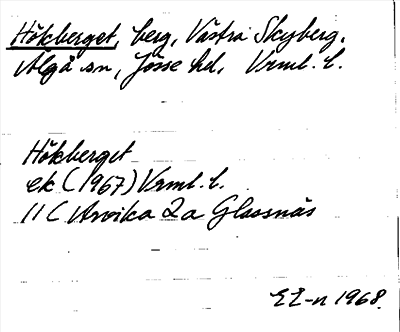 Hökberget, berg, Västra Skyberg,
Älgå sn, Jösse hd, Vrml. l.
Hökberget
ek (1967) Vrml. l.
11 C Arvika 2 a Glassnäs
EL-n 1968.